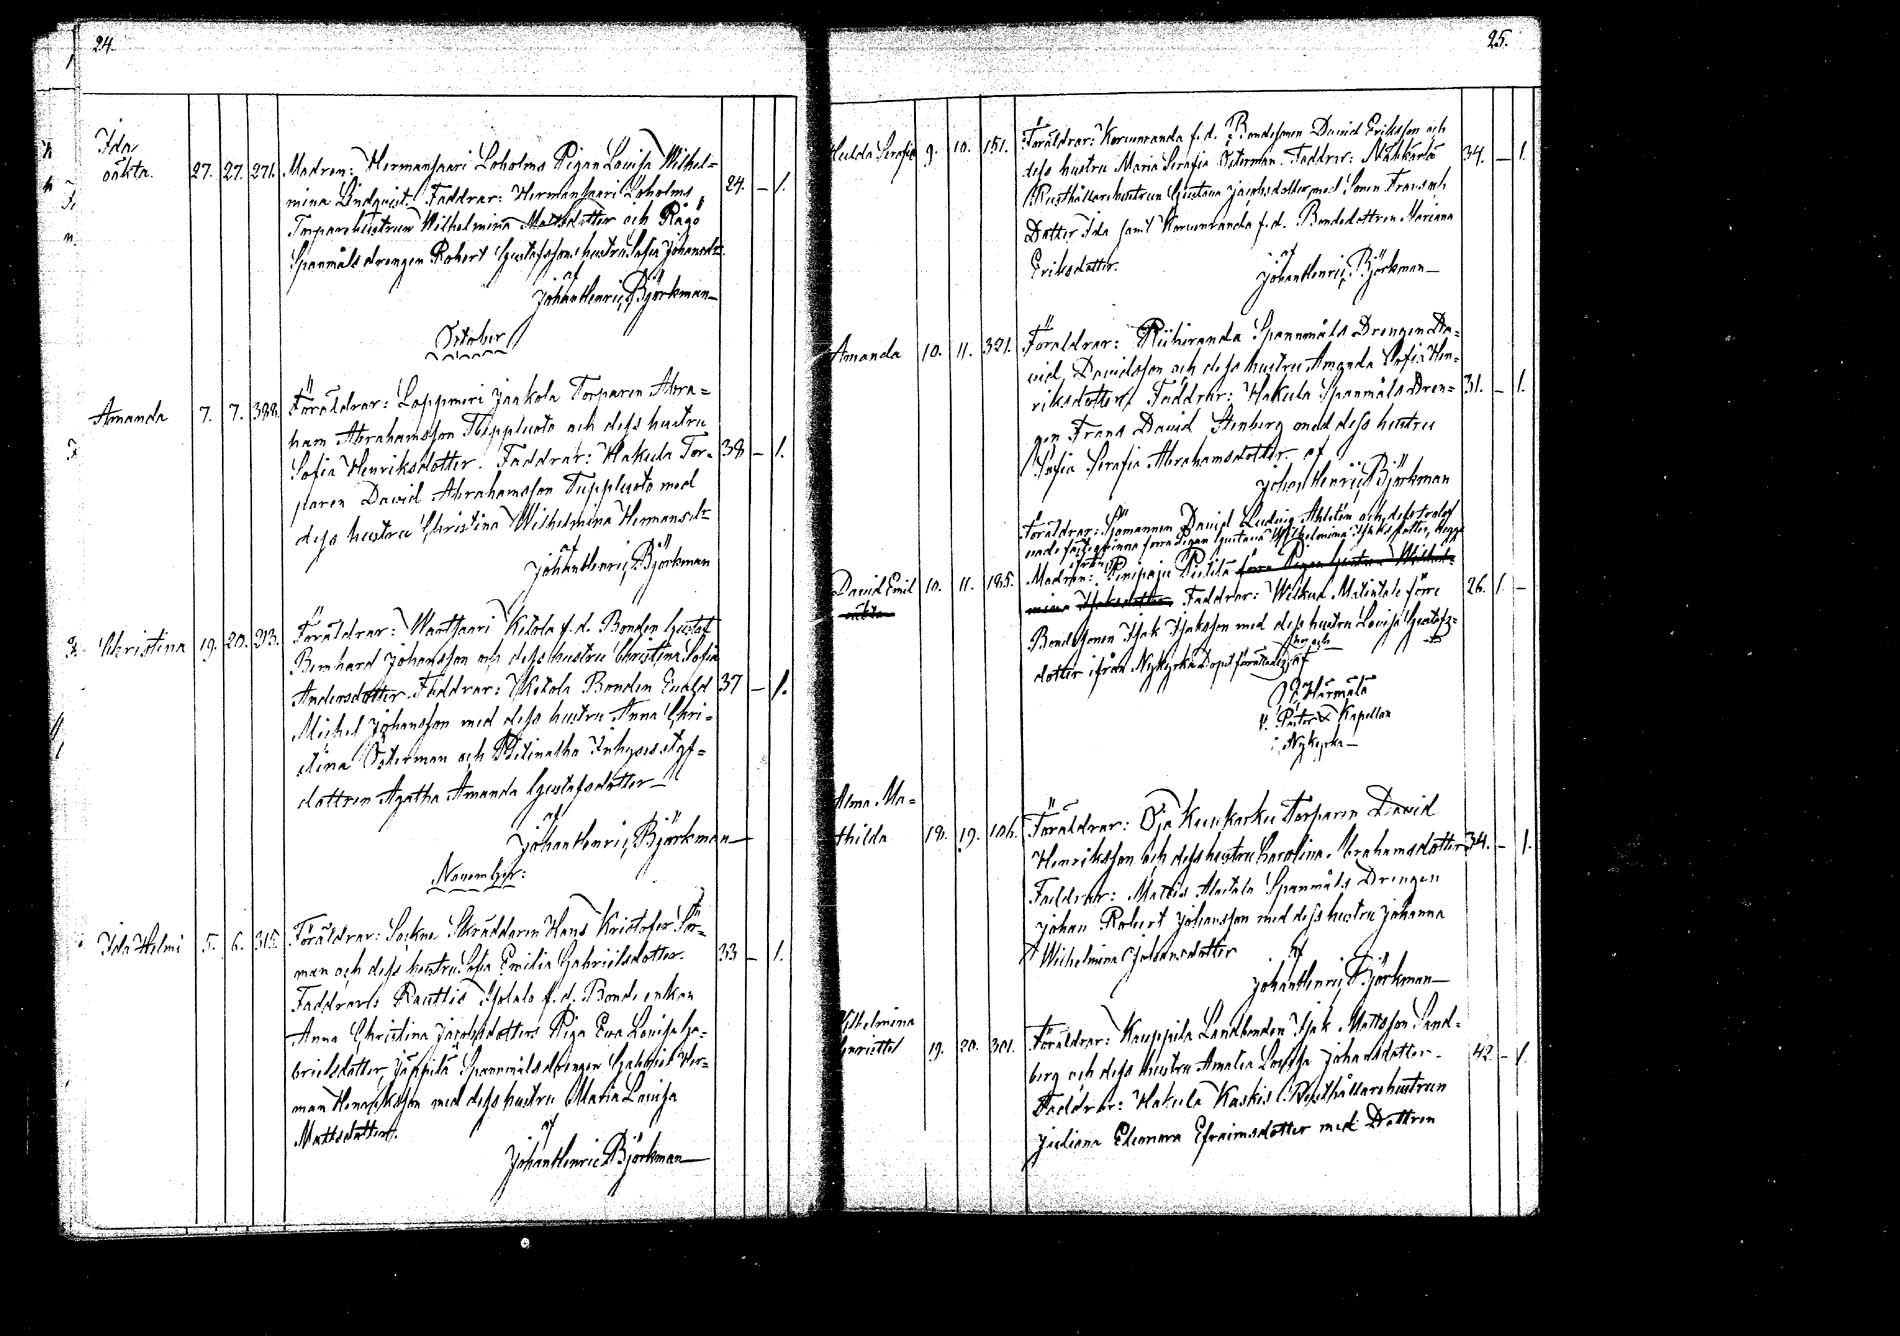 24.
Ida
oäkta. 27. 27. 271. Modren: Hermansaari Loholms Pigan Lovisa Wilhel-
mina Lindqvist. Faddrar: Hermansaari Loholms 24. – 1.
Torparehustrun Wilhelmina Matsdotter och Rågö
Spanmålsdrengen Robert Gustafssons hustru Sofia Johansdr.
af
Johan Henric Björkman
October
Amanda 7. 7. 388. Föräldrar: Lappmeri Jaakola Torparen Abra-
ham Abrahamsson Tuppluoto och dess hustru
Sofia Henriksdotter. Faddrar: Hakula Tor- 38 – 1.
paren David Abrahamsson Tuppluoto med
dess hustru Christina Wilhelmina Hermansdr
af
Johan Henric Björkman
Christina 19. 20. 213. Föräldrar: Wartsaari Ketola f.d. Bonden Gustaf
Bernhard Johansson och dess hustru Christina Sofia
Andersdotter. Faddrar: Ketola Bonden Evald 37 – 1.
Michel Johansson med dess hustru Anna Chri-
stina Österman och Inhyses styf-
dottren Agatha Amanda Gustafsdotter
af
Johan Henric Björkman
November:
Ida Helmi 5. 6. 315. Föräldrar: Sockne Skräddaren Hans Kristofer Sör-
man och dess hustru Sofia Emilia Gabrielsdotter. 33 – 1.
Faddrar: Rauttis Isotalo f.d. Bonde enkan
Anna Christina Jacobsdotter, Piga Eva Lovisa Ga-
brielsdotter, Jäppilä Spannmålsdrengen Gabriel Her-
man Henriksson med dess hustru Maria Lovisa
Mattsdotter.
af
Johan Henric Björkman
25.
Hulda Serafia 9. 10. 151. Föräldrar: Korvenranda f.d. Bondesonen David Eriksson och
dess hustru Maria Serafia Österman. Faddrar: 34. – 1.
Rusthållarehustrun Gustava Jacobsdotter med Sonen Frans och
Dotter Ida samt Korvenranda f.d. Bondedottren Mariana
Eriksdotter.
af
Johan Henric Björkman
Amanda 10. 11. 321. Föräldrar: Riihiranda Spannmåls Drengen Da-
vid Davidsson och dess hustru Amanda Sofia Hen-
riksdotter. Faddrar: Hakula Spanmåls Dren- 31. – 1.
gen Frans David Stenberg med dess hustru
Sofia Serafia Abrahamsdotter. af
Johan Henric Björkman
Föräldrar: Sjömannen David Ludvig Ahlsten och dess trolof-
vade fästeqvinna förra Pigan Gustava Wilhelmina Isaksdotter,
David Emil 10. 11. 185. Modren: Pinipaju Pietilä förra Pigan Gustava Wilhel-
oäkta mina Isaksdotter. Faddrar: Förre 26. 1. –
Bondesonen Isak Isaksson med dess hustru Lovisa Gustafs-
dotter ifrån Nykyrka Dopet förrättadt af
Härmälä
v. Pastor Kapellan
i Nykyrka
Alma Ma-
thilda 18. 19. 106. Föräldrar: Oja Kuuskorku Torparen David
Henriksson och dess hustru Carolina Abrahamsdotter 34. – 1.
Faddrar: Mattis Alastalo Spanmåls Drengen
Johan Robert Johansson med dess hustru Johanna
Wilhelmina Johansdotter af
Johan Henric Björkman
Wilhelmina
Henriette 19. 20. 301. Föräldrar: Kauppila Landbonden Isak Mattsson Sand-
berg och dess hustru Amalia Lovisa Johansdotter. 42. – 1.
Faddrar: Hakula Kaskis Rusthållarehustrun
Juliana Eleonora Efraimsdotter med Dottren